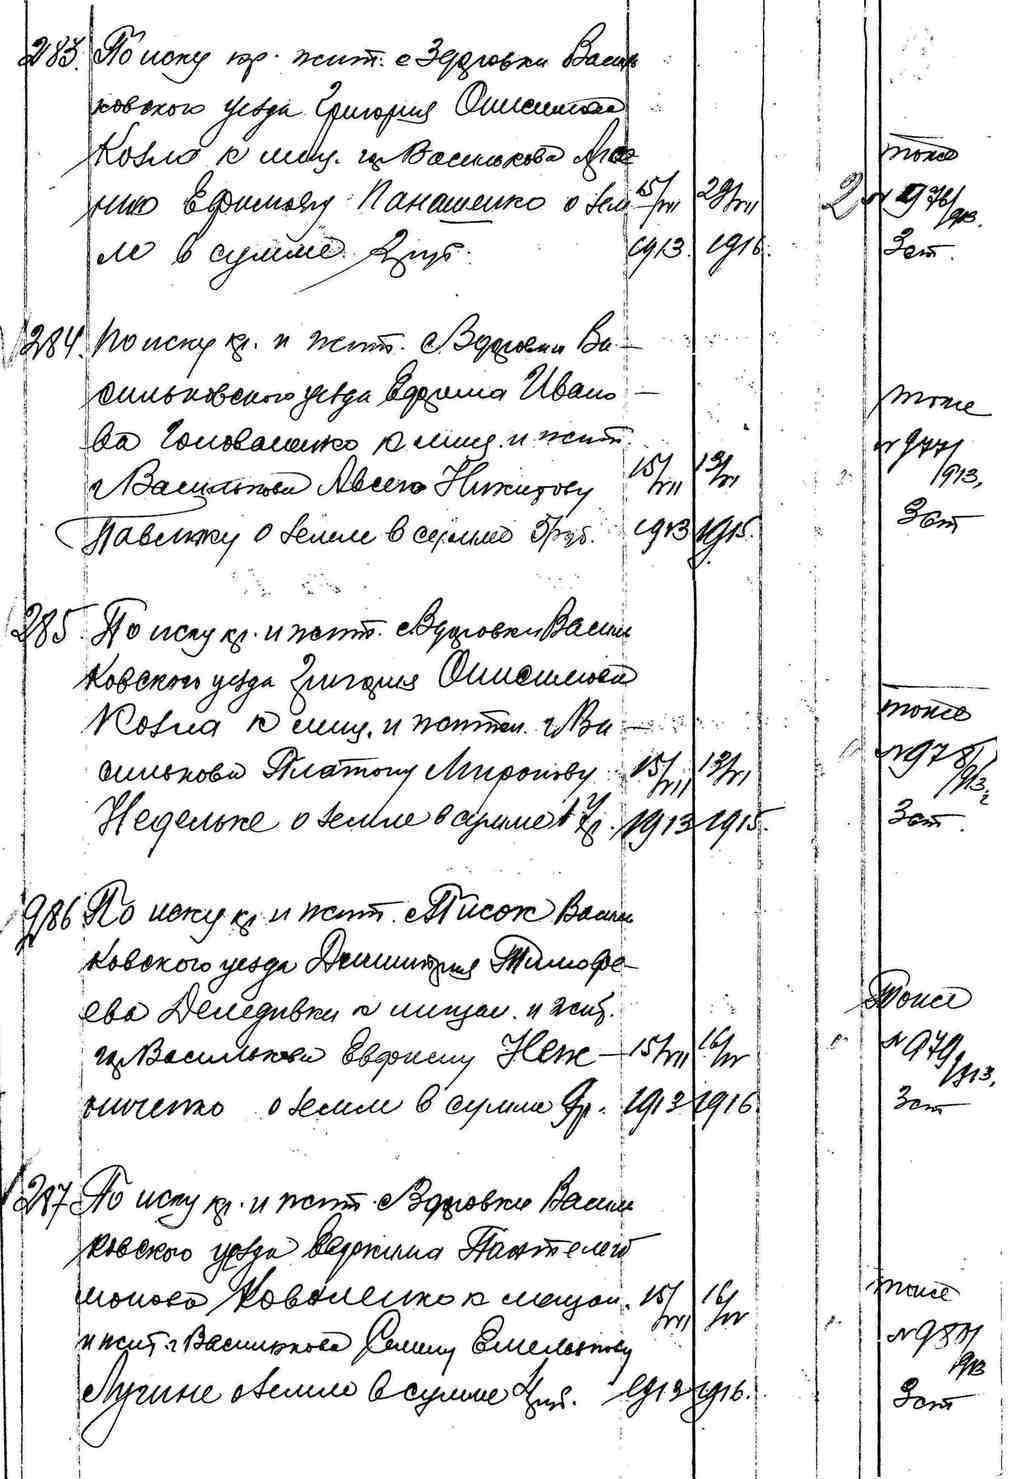 283. По иску кр. жит. с Здоровки Василь
ковского уезда Григория Онисимова
Козла к мещ. гр. Василькова
Ефимову Панашенко о зем
ле в сумме 2 руб.
15/VII 1913. 29/VII 1916.
тоже
N 976/913.
3 ст.
284. По иску кр. и жит. с Здоровки Ва-
сильковского уезда Ефима Ивано-
ва Головаченко к мещ. и жит.
г Василькова Авсею Никитову
Павленку о земле в сумме 5 руб.
15/VII 1913 13/VI 1915.
тоже
N 977/913.
3 ст
285. По иску кр. и жит. с Здоровки Василь
ковского уезда Григория Онисимова
Козла к мещ. и жител. г. Ва-
силькова Платону Миронову
Недельке о земле в сумме 17 р.
15/VII 1913 13/VI 1915.
тоже
N 978/913 г
3 ст.
286 По иску кр. и жит. с Писок Василь
ковского уезда Димитрия Тимофе-
ева к мещан. и жит.
гр. Василькова Евфимию Неж-
ниченко о земле в сумме 9 р.
15/VII 1913 16/IV 1916.
Тоже
N 979/913.
3 ст
287 По иску кр. и жит. с Здоровки Василь
ковского уезда Евфимия Пантелей
монова Коваленко к мещан.
и жит. г. Василькова Семену Емельянову
Лугине о земле в сумме 4 руб.
15/VII 1913 16/IV 1916.
тоже
N 981/913
3 ст